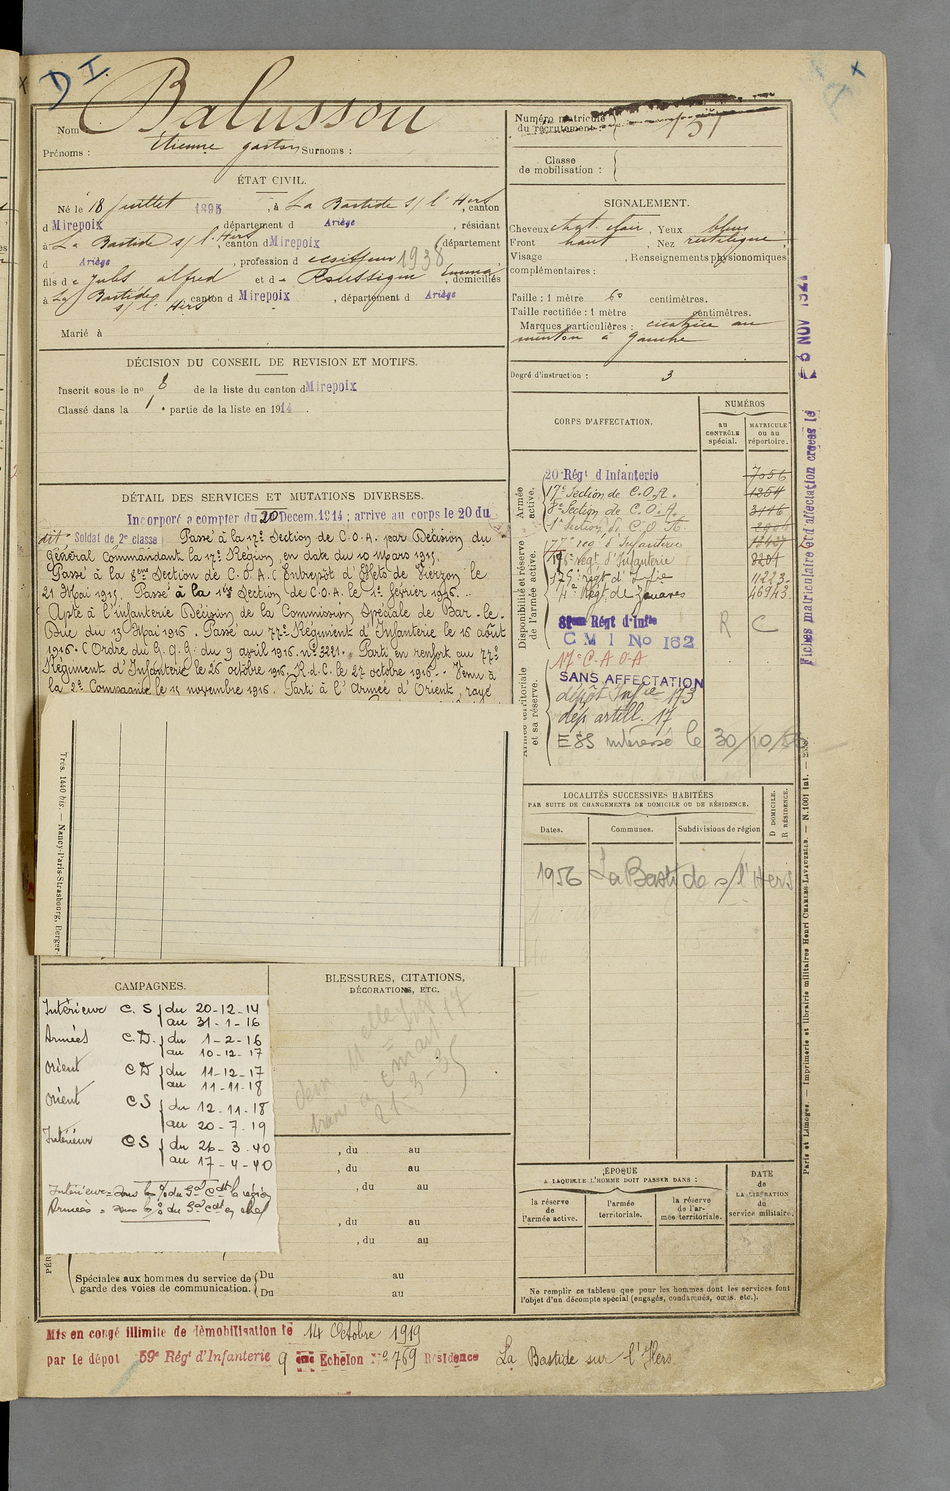 D I
Nom Balussou
Prénoms : Etienne gaston Surnoms :
ÉTAT CIVIL.
Né le 18 juillet 1895, à La Bastide s/ l'Hers, canton
d Mirepoix, département d Ariège, résidant
à La Bastide s/ l'Hers, canton d Mirepoix, département
d Ariège, profession d coiffeur 1938
fils de Jules alfred et de Roussique Emma, domiciliés
à La Bastide s/ l'Hers, canton d Mirepoix, département d Ariège
Marié à
DÉCISION DU CONSEIL DE REVISION ET MOTIFS.
Inscrit sous le nº 8 de la liste du canton d Mirepoix
Classé dans la 1e partie de la liste en 1914.
DÉTAIL DES SERVICES ET MUTATIONS DIVERSES.
Incorporé a compter du 20 Decem. 1914 ; arrive au corps le 20 du
dit Soldat de 2e classe Passé à la 17e Section de C.O.A. par Décision du
Général Commandant la 17e Région, en date du 10 mars 1915.
Passé à la 8ème Section de C.O.A. (Entrepôt d'Effets de Vierzon) le
21 Mai 1915. Passé à la 1ère Section de C.O.A. le 1er février 1916.
Apte à l'infanterie Décision de la Commission Spéciale de Bar-le-
Duc du 13 Mai 1916. Passé au 77e Régiment d'Infanterie le 16 août
1916. (Ordre du G.Q.G. du 9 avril 1916. nº 3221. Parti en renfort au 77e
Régiment d'Infanterie le 26 octobre 1916. R.d.C. le 27 octobre 1916. Venu à
la 2e Compagnie le 15 novembre 1916. Parti à l'Armée d'Orient, rayé
Tres. 1440 bis. — Nancy-Paris-Strasbourg, Berger-
CAMPAGNES.
Intérieur C.S { du 20-12-14
au 31-1-16
Armées C.D. { du 1-2-16
au 10-12-17
Orient CD { du 11-12-17
au 11-11-18
Orient CS { du 12-11-18
au 20-7-19
Intérieur CS { du 26-3-40
au 17-4-40
BLESSURES, CITATIONS,
DÉCORATIONS, ETC.
, du au
, du au
, du au
, du au
, du au
Spéciales aux hommes du service de garde des voies de communication. { Du au
Du au
Mis en congé illimité de démobilisation le 14 Octobre 1919
par le dépot 59e Régt d'Infanterie 9 ème Echelon Nº 769 Résidence La Bastide sur l'Hers
Numéro matricule
du recrutement
Classe
de mobilisation :
SIGNALEMENT.
Cheveux chat. clair, Yeux bleus
Front haut, Nez rectiligne
Visage , Renseignements physionomiques
complémentaires :
Taille : 1 mètre 60 centimètres.
Taille rectifiée : 1 mètre centimètres.
Marques particulières : cicatrice au
menton à gauche
Degré d'instruction : 3
CORPS D'AFFECTATION.
NUMÉROS
au CONTRÔLE spécial.
MATRICULE ou au répertoire.
Armée active.
20 Régt d'Infanterie 7056
17e Section de C.O.A. 1354
8e Section de C.O.A. 3116
1e Section de C.O.A.
Disponibilité et réserve de l'armée active.
77e régt d'Infanterie
176e régt d'Infanterie 3204
175e régt d'Infie 11223
4e Régt de Zouaves 46943
81ème Régt d'Infie R C
C M I No 162
Armée territoriale et sa réserve.
17e C.A O A
SANS AFFECTATION
dépôt Infie 173
dép. artill. 17
E8S intéressé le 30/10/
LOCALITÉS SUCCESSIVES HABITÉES
PAR SUITE DE CHANGEMENTS DE DOMICILE OU DE RÉSIDENCE.
Dates. Communes. Subdivisions de région
D DOMICILE. R RÉSIDENCE.
1956 La Bastide s/ l'Hers
ÉPOQUE
A LAQUELLE L'HOMME DOIT PASSER DANS :
la réserve de l'armée active.
l'armée territoriale.
la réserve de l'armée territoriale.
DATE
de
LA LIBÉRATION
du
service militaire.
Ne remplir ce tableau que pour les hommes dont les services font
l'objet d'un décompte spécial (engagés, condamnés, omis, etc.).
Fiches matriculaire et d'affectation créées le 6 NOV 1921
Paris et Limoges. — Imprimerie et librairie militaires Henri CHARLES-LAVAUZELLE. — N. 1001 int.